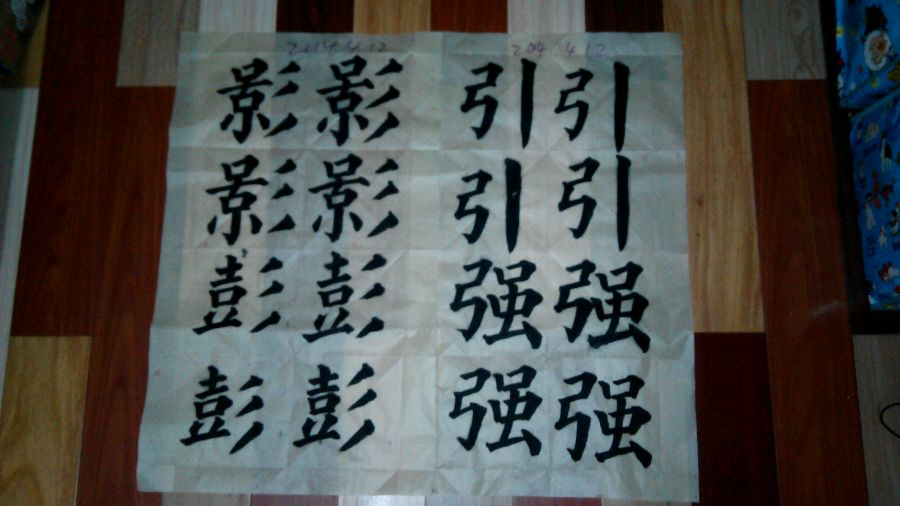 2014.4.12 204 4.12
影影引引
影影引引
彭彭强强
彭彭强强